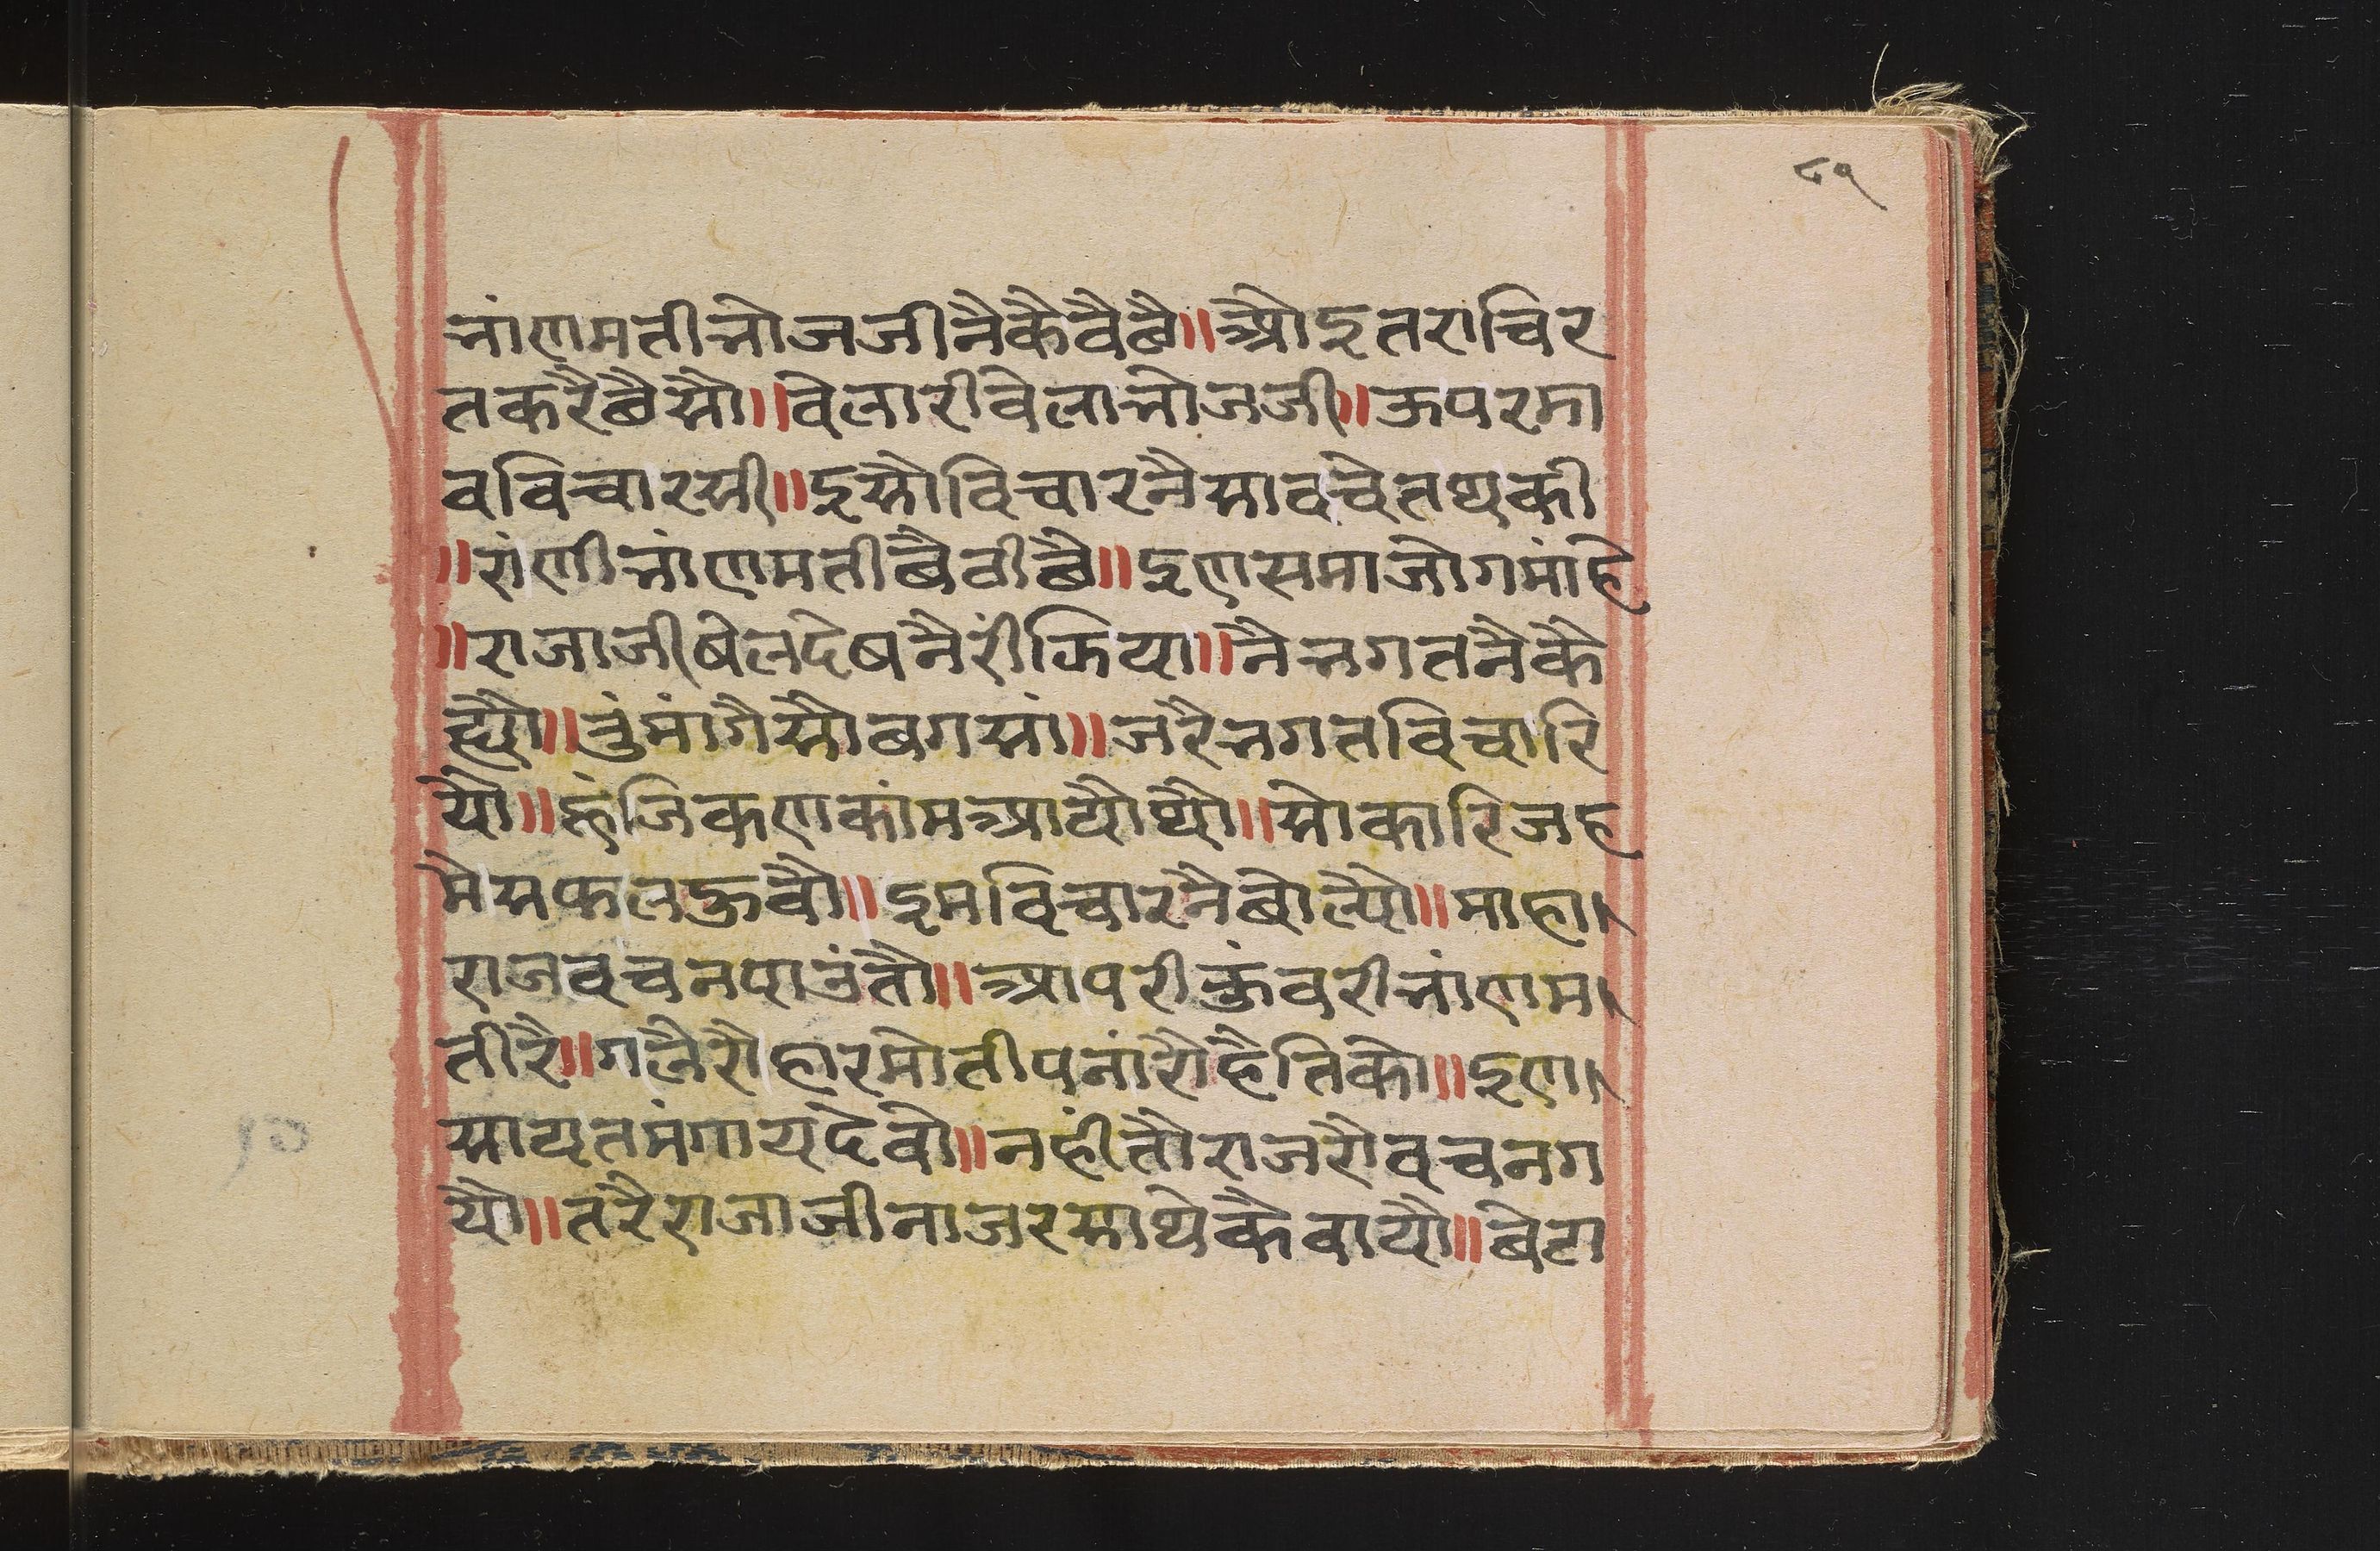 ८१
भांणमतीभोजजीनैकैवैछै॥ओइतराचिर
तकरैछैसौ॥वेलारीवेलाभोजजी॥ऊपरमा
वविचारसी॥इसौविचारनैसावचेतथकी
॥रांणीभांणमतीबैठीछै॥इणसमाजोगमांहे
॥राजाजीषेलदेषनैरीझिया॥नैभगतनैकै
ह्यौ॥तुंमांगैसौबगसां॥जरैभगतविचारि
यौ॥हुंजिकणकांमआयौथौ॥सोकारिजह
मैसफलहूवौ॥इमविचारनैबोल्यौ॥माहा।
राजवचनपाउंतौ॥आपरीकुंवरीभांणम।
तीरै॥गलैरौहारमोतीपनांरौहैतिको॥इण।
सायतमंगायदेवो॥नहींतौराजरौवचनग
यौ॥तरैराजाजीनाजरसाथेकैवायौ॥बेटा